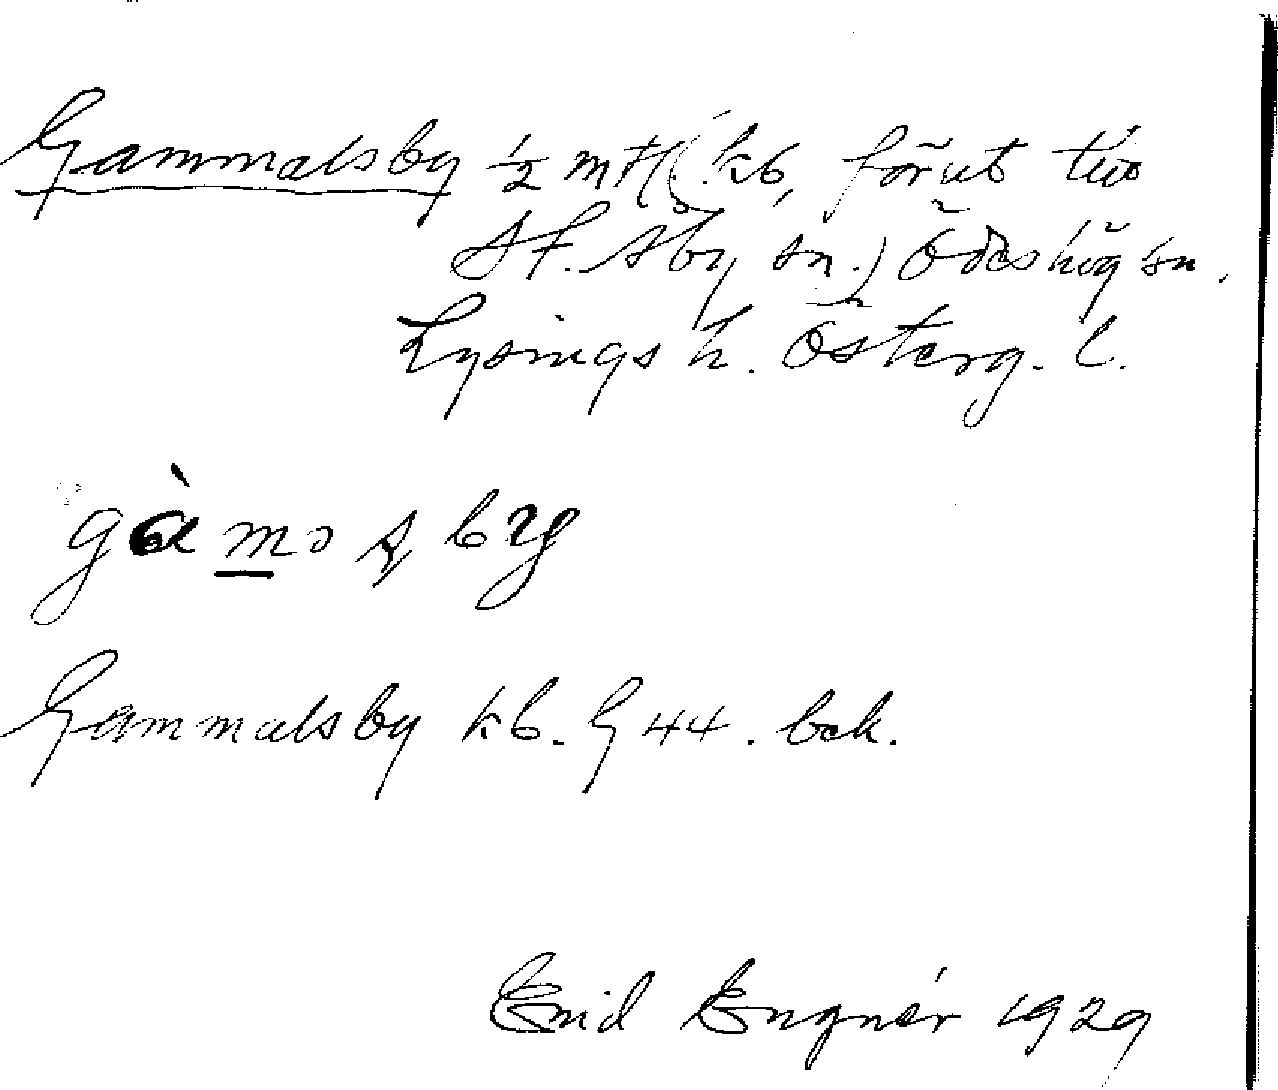 Gammalsby ½ mtl (kb, förut till
St. Åby sn.) Ödeshög sn.
Lysings h. Österg. l.
gàmɔʂby
Gammalsby kb. G 44. bek.
Enid Engnér 1929